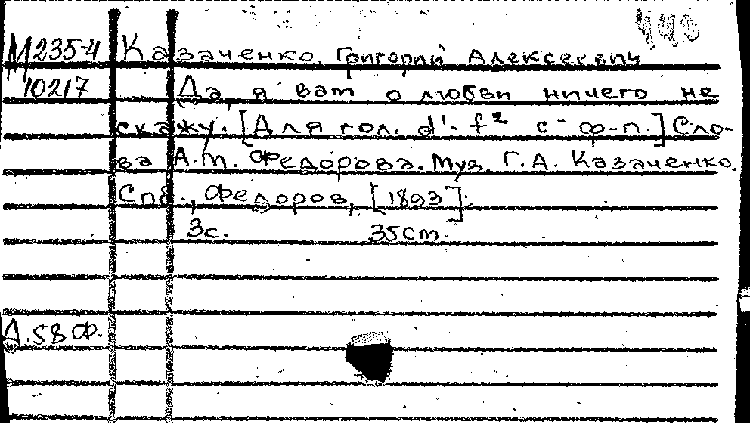 443
М235-4 Казаченко, Григорий Алексеевич
10217 Да, я вам о любви ничего не
скажу. [Для гол. d¹-f² с ф-п.] Сло-
ва А.М. Федорова. Муз. Г.А. Казаченко.
Спб., Федоров, [1893].
3с. 35см.
Д.58 Ф.